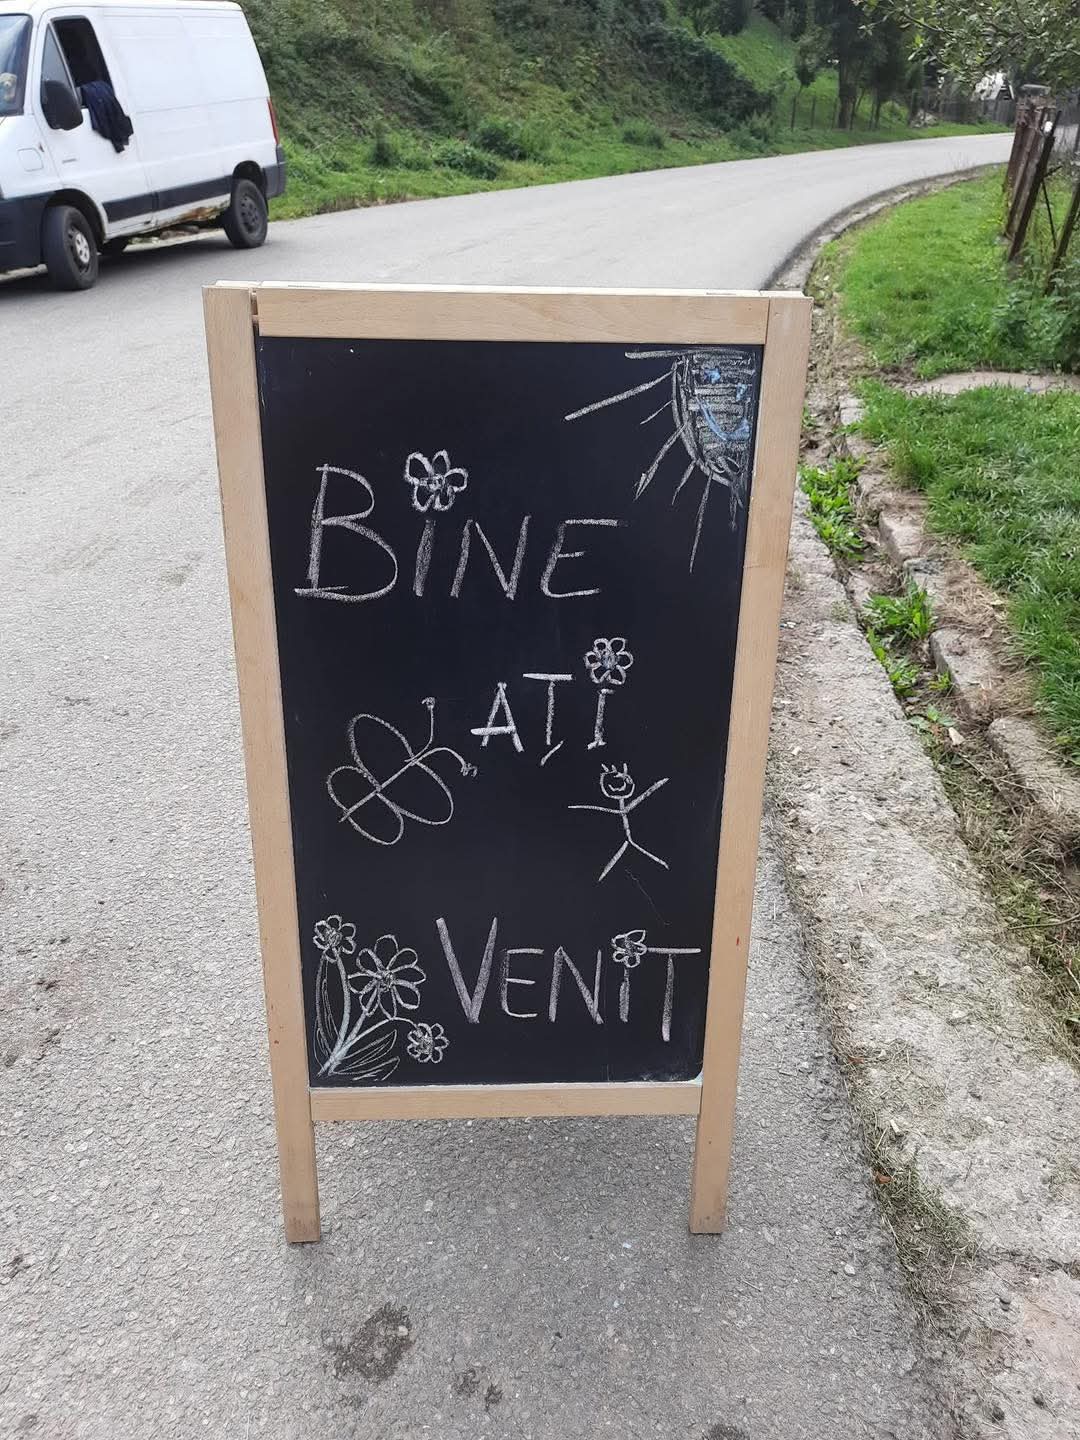 BiNE
AȚI
VENiT